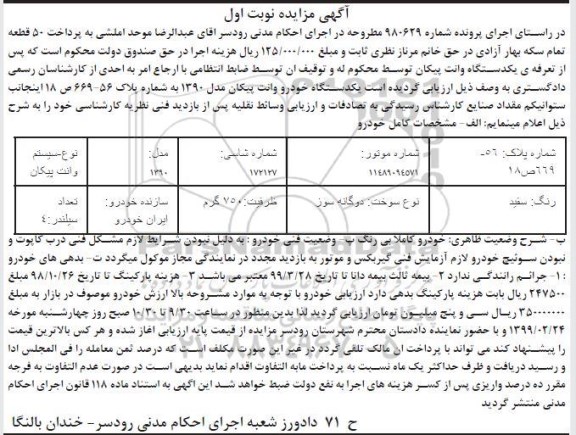 آگهی مزایده نوبت اول
در راستای اجرای پرونده شماره ۹۸۰۶۲۹ مطروحه در اجرای احکام مدنی رودسر اقای عبدالرضا موحد املشی به پرداخت ۵۰ قطعه
تمام سکه بهار آزادی در حق خانم مرناز نظری ثابت و مبلغ ۱۲۵/۰۰۰/۰۰۰ ریال هزینه اجرا در حق صندوق دولت محکوم است که پس
از تعرفه ی یکدستگاه وانت پیکان توسط محکوم له و توقیف ان توسط ضابط انتظامی با ارجاع امر به احدی از کارشناسان رسمی
دادگستری به وصف ذیل ارزیابی گردیده است یکدستگاه خودرو وانت پیکان مدل ۱۳۹۰ به شماره پلاک ۵۶-۶۶۹ ص ۱۸ اینجانب
ستوانیکم مقداد صنایع کارشناس رسیدگی به تصادفات و ارزیابی وسائط نقلیه پس از بازدید فنی نظریه کارشناسی خود را به شرح
ذیل اعلام مینمایم: الف- مشخصات کامل خودرو
شماره پلاک: ۵۶- ۶۶۹ص۱۸ شماره موتور: ۱۱۴۸۹۰۹۴۵۷۱ شماره شاسی: ۱۷۲۱۲۷ مدل: ۱۳۹۰ نوع-سیستم وانت پیکان
رنگ: سفید نوع سوخت: دوگانه سوز ظرفیت: ۷۵۰ گرم سازنده خودرو: ایران خودرو تعداد سیلندر: ۴
ب- شرح وضعیت ظاهری: خودرو کاملا بی رنگ ب- وضعیت فنی خودرو: به دلیل نبودن شرایط لازم مشکل فنی درب کاپوت و
نبودن سوئیچ خودرو لازم آزمایش فنی گیربکس و موتور به بازدید مجدد در نمایندگی مجاز موکول میگردد ت- بدهی های خودرو
۱: - جرائم رانندگی ندارد ۲- بیمه ثالث بیمه دانا تا تاریخ ۹۹/۳/۲۸ معتبر می باشد ۳- هزینه پارکینگ تا تاریخ ۹۸/۱۰/۲۶ مبلغ
۲۴۷۵۰۰ ریال بابت هزینه پارکینگ بدهی دارد ارزیابی خودرو با توجه به موارد مشروحه بالا ارزش خودرو موصوف در بازار به مبلغ
۳۵۰۰۰۰۰۰۰ ریال سی و پنج میلیون تومان ارزیابی گردید لذا بدین منظور در ساعت ۹/۳۰ تا ۱۰/۳۰ صبح روز چهارشنبه مورخه
۱۳۹۹/۰۲/۲۴ و با حضور نماینده دادستان محترم شهرستان رودسر مزایده از قیمت پایه ارزیابی اغاز شده و هر کس بالاترین قیمت
را پیشنهاد کند می تواند با پرداخت ان مالک تلقی گردد در غیر این صورت مکلف است که درصد ثمن معامله را فی المجلس ادا
و رسید دریافت و ظرف حداکثر یک ماه نسبت به پرداخت مابه التفاوت اقدام نماید بدیهی است در صورت عدم التفاوت به فرجه
مقرر ده درصد واریزی پس از کسر هزینه های اجرا به نفع دولت ضبط خواهد شد این اگهی به استناد ماده ۱۱۸ قانون اجرای احکام
مدنی منتشر گردید
ح ۷۱ دادورز شعبه اجرای احکام مدنی رودسر- خندان بالنگا